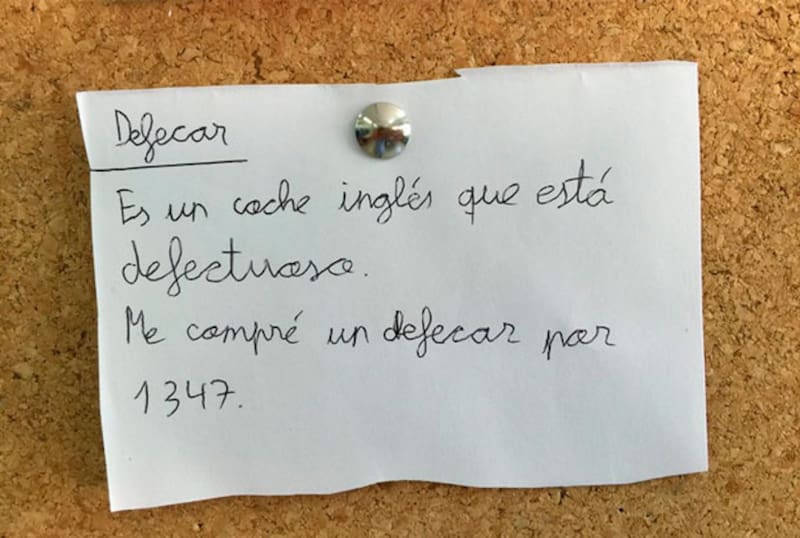 Defecar
Es un coche inglés que está
defectuoso.
Me compré un defecar por
1347.